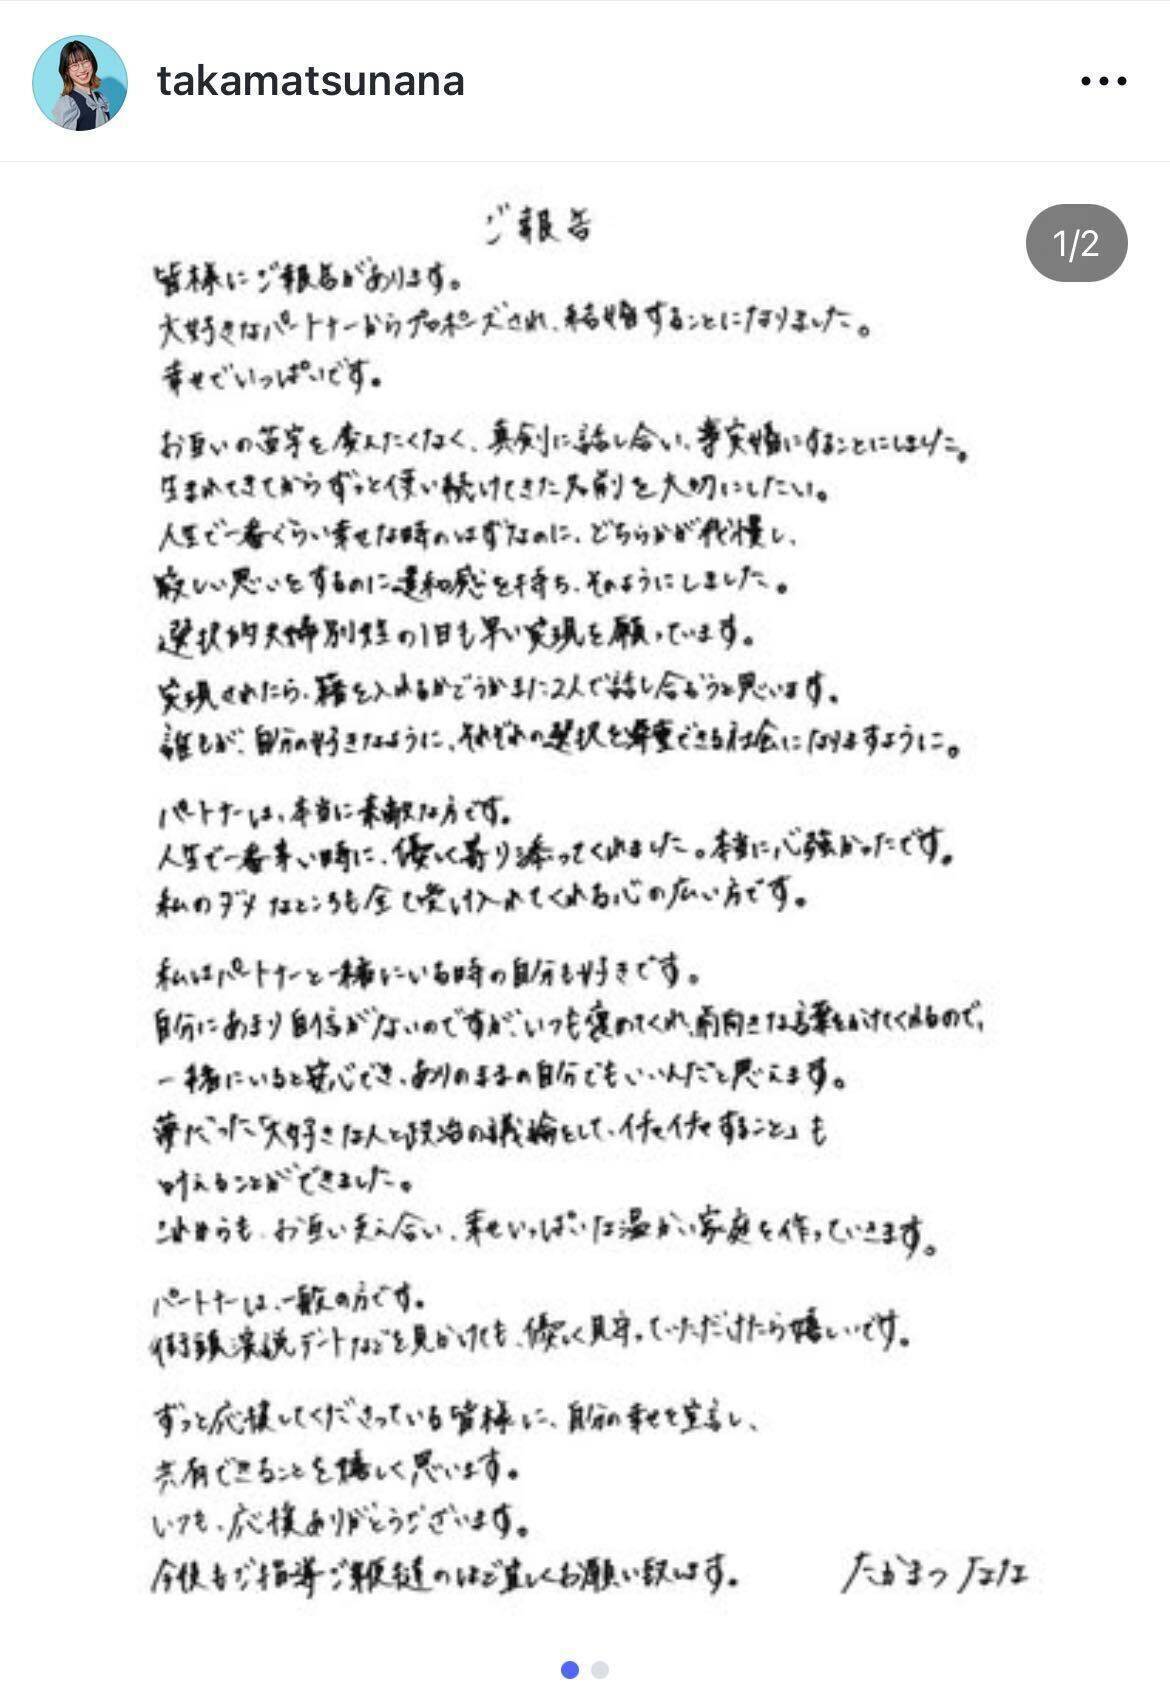 takamatsunana
1/2
ご報告
皆様にご報告があります。
大好きなパートナーからプロポーズされ、結婚することになりました。
幸せでいっぱいです。
お互いの苗字を変えたくなく、真剣に話し合い、事実婚にすることにしました。
生まれてきてからずっと使い続けてきた名前を大切にしたい。
人生で一番ぐらい幸せな時のはずなのに、どちらかが我慢し、
寂しい思いをするのに違和感を持ち、そのようにしました。
選択的夫婦別姓の1日も早い実現を願っています。
実現されたら、籍を入れるかどうかまた2人で話し合おうと思います。
誰もが、自分の好きなように、それぞれの選択を尊重できる社会になりますように。
パートナーは、本当に素敵な方です。
人生で一番辛い時に、優しく寄り添ってくれました。本当に心強かったです。
私のダメなところも全て受け入れてくれる心の広い方です。
私はパートナーと一緒にいる時の自分も好きです。
自分にあまり自信がないのですが、いつも褒めてくれ、前向きな言葉をかけてくれるので、
一緒にいると安心でき、ありのままの自分でもいいんだと思えます。
夢だった「大好きな人と政治の議論をして、イチャイチャすること」も
叶えることができました。
これからも、お互い支え合い、幸せいっぱいな温かい家庭を作っていきます。
パートナーは、一般の方です。
街頭演説デートなどを見かけても、優しく見守っていただけたら嬉しいです。
ずっと応援してくださっている皆様に、自分の幸せを宣言し、
共有できることを嬉しく思います。
いつも、応援ありがとうございます。
今後もご指導ご鞭撻のほど宜しくお願い致します。 たかまつなな